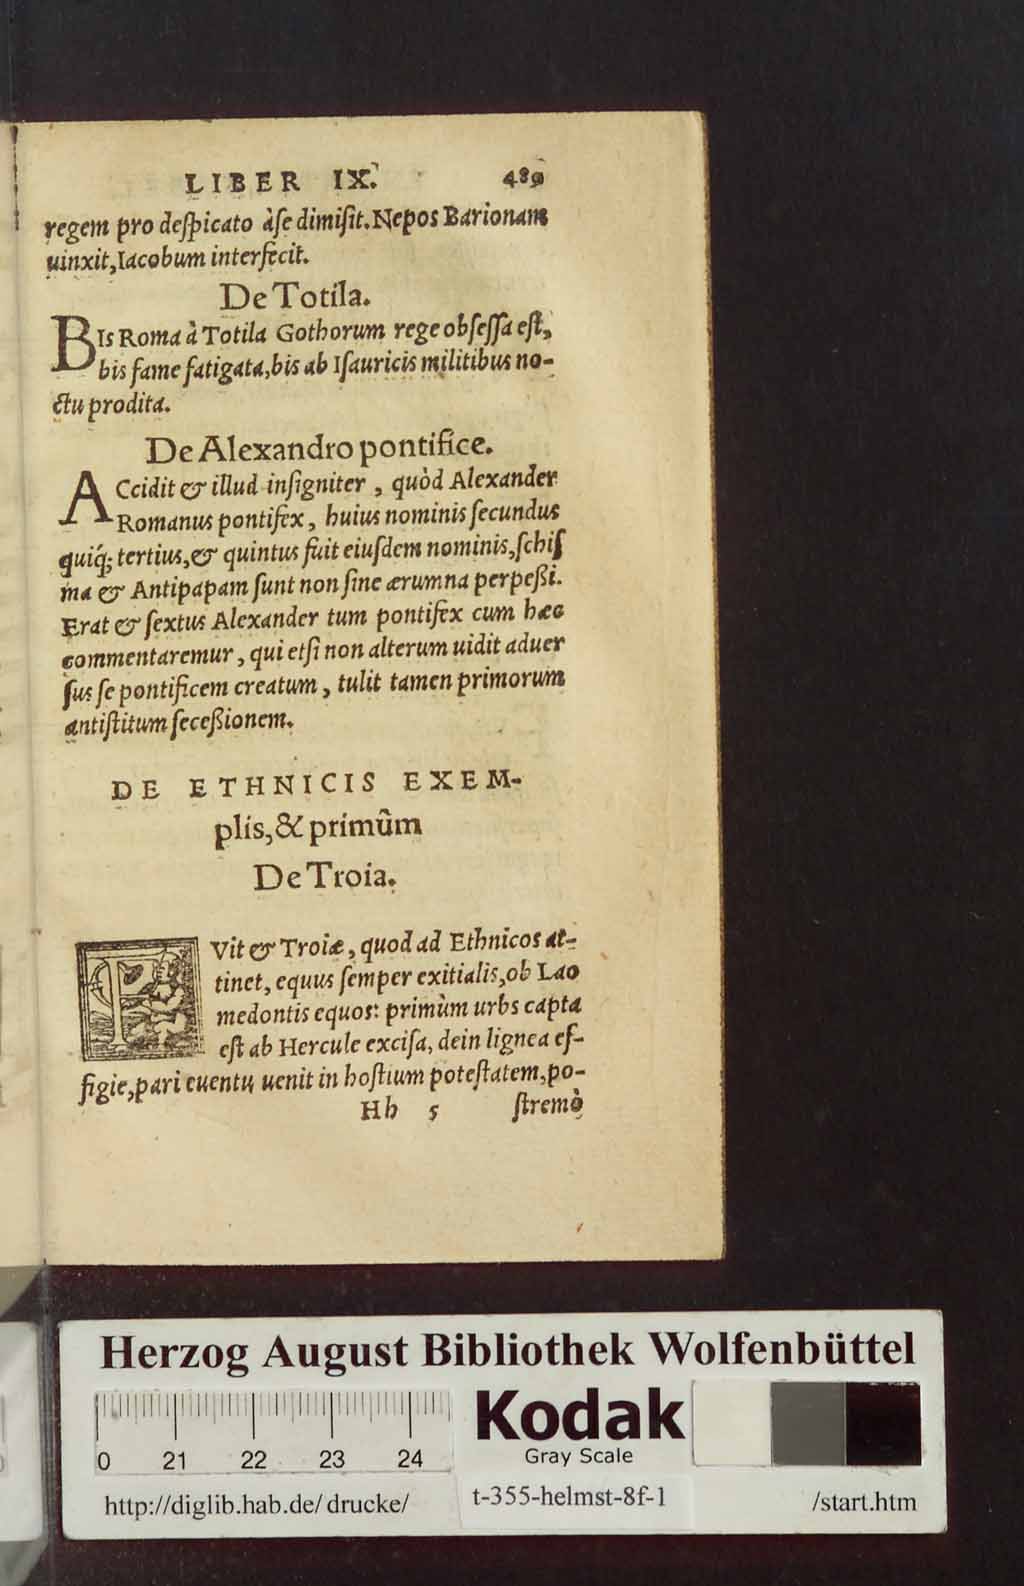 LIBER IX. 489
regem pro deſpicato àſe dimiſit. Nepos Barionam
uinxit, Iacobum interfecit.
De Totila.
BIs Roma à Totila Gothorum rege obſeſſa eſt,
bis fame fatigata, bis ab Iſauricis militibus no-
ctu prodita.
De Alexandro pontifice.
ACcidit & illud inſigniter, quòd Alexander
Romanus pontifex, huius nominis ſecundus
quiq; tertius, & quintus fuit eiuſdem nominis, ſchiſ
ma & Antipapam ſunt non ſine ærumna perpeßi.
Erat & ſextus Alexander tum pontifex cum hæc
commentaremur, qui etſi non alterum uidit aduer
ſus ſe pontificem creatum, tulit tamen primorum
antiſtitum ſeceßionem.
DE ETHNICIS EXEM-
plis, & primûm
De Troia.
FVit & Troiæ, quod ad Ethnicos at-
tinet, equus ſemper exitialis, ob Lao
medontis equos: primùm urbs capta
eſt ab Hercule exciſa, dein lignea ef-
figie, pari euentu uenit in hoſtium poteſtatem, po-
Hh 5 ſtremò
Herzog August Bibliothek Wolfenbüttel
0 21 22 23 24
Kodak
Gray Scale
http://diglib.hab.de/drucke/ t-355-helmst-8f-1 /start.htm